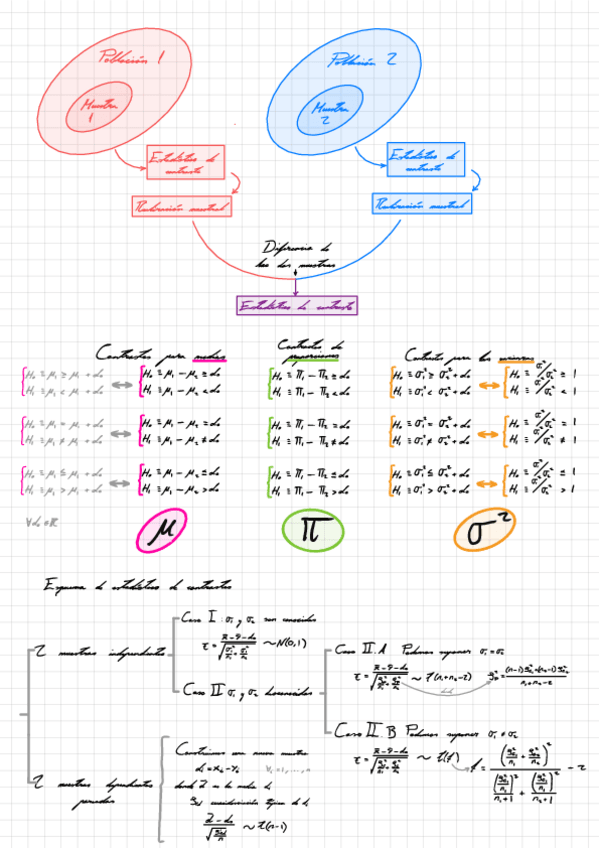 Población 1
Muestra
1
Población 2
Muestra
2
Estadístico de
contraste
Distribución muestral
Estadístico de
contraste
Distribución muestral
Diferencia de
las dos muestras
Estadístico de contraste
Contrastes para medias
H₀ ≡ μ₁ ≥ μ₂ + d₀
H₁ ≡ μ₁ < μ₂ + d₀
H₀ ≡ μ₁ - μ₂ ≥ d₀
H₁ ≡ μ₁ - μ₂ < d₀
H₀ ≡ μ₁ = μ₂ + d₀
H₁ ≡ μ₁ ≠ μ₂ + d₀
H₀ ≡ μ₁ - μ₂ = d₀
H₁ ≡ μ₁ - μ₂ ≠ d₀
H₀ ≡ μ₁ ≤ μ₂ + d₀
H₁ ≡ μ₁ > μ₂ + d₀
H₀ ≡ μ₁ - μ₂ ≤ d₀
H₁ ≡ μ₁ - μ₂ > d₀
∀d₀ ∈ ℝ
μ
Contrastes de
proporciones
H₀ ≡ Π₁ - Π₂ ≥ d₀
H₁ ≡ Π₁ - Π₂ < d₀
H₀ ≡ Π₁ - Π₂ = d₀
H₁ ≡ Π₁ - Π₂ ≠ d₀
H₀ ≡ Π₁ - Π₂ ≤ d₀
H₁ ≡ Π₁ - Π₂ > d₀
Π
Contrastes para las varianzas
H₀ ≡ σ₁² ≥ σ₂² + d₀
H₁ ≡ σ₁² < σ₂² + d₀
H₀ ≡ σ₁²/σ₂² ≥ 1
H₁ ≡ σ₁²/σ₂² < 1
H₀ ≡ σ₁² = σ₂² + d₀
H₁ ≡ σ₁² ≠ σ₂² + d₀
H₀ ≡ σ₁²/σ₂² = 1
H₁ ≡ σ₁²/σ₂² ≠ 1
H₀ ≡ σ₁² ≤ σ₂² + d₀
H₁ ≡ σ₁² > σ₂² + d₀
H₀ ≡ σ₁²/σ₂² ≤ 1
H₁ ≡ σ₁²/σ₂² > 1
σ²
Esquema de estadísticos de contrastes
2 muestras independientes
Caso I: σ₁ y σ₂ son conocidas
~ N(0,1)
Caso II σ₁ y σ₂ desconocidas
Caso II.A Podemos suponer σ₁ = σ₂
~ t(n₁+n₂-2)
Caso II.B Podemos suponer σ₁ ≠ σ₂
~ t(f)
2 muestras dependientes
pareadas
Construimos una nueva muestra
dᵢ = xᵢ - yᵢ ∀i = 1, ..., n
donde d es la media de
típica de d
~ t(n-1)